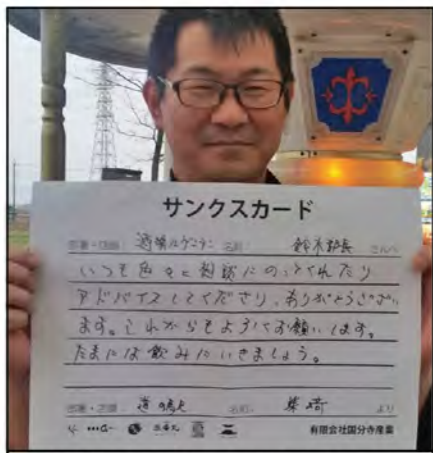 サンクスカード
部署・店舗 道場ルゲンテン 名前 鈴木部長 さんへ
いつも色々と相談にのってくれたり
アドバイスしてくださり、ありがとうござい
ます。これからもよろしくお願いします。
たまには飲みにいきましょう。
部署・店舗 道の駅 名前 柴崎 より
有限会社国分寺産業